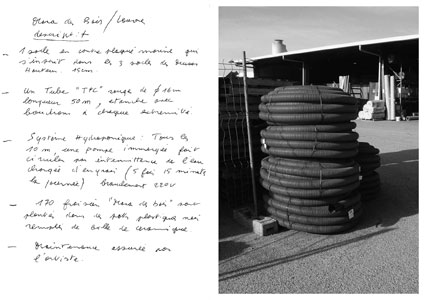 Mara des Bois / Louvre
descriptif
– 1 socle en contre plaqué marine qui
s'inscrit dans les 3 socles du
Hauteur 15cm
– Un Tube "TPC" rouge de Ø 16 m
longueur 50 m, étanche avec
bouchons à chaque extrémité
– Système Hydroponique : Tous les
10 m, une pompe immergée fait
circuler par intermittence de l'eau
chargée d'engrais (5 fois 15 minutes
la journée) branchement 220V
– 170 fraisiers "Mara des bois" sont
plantés dans des pots plastique noir
remplis de bille de céramique
– Maintenance assurée par
l'artiste.